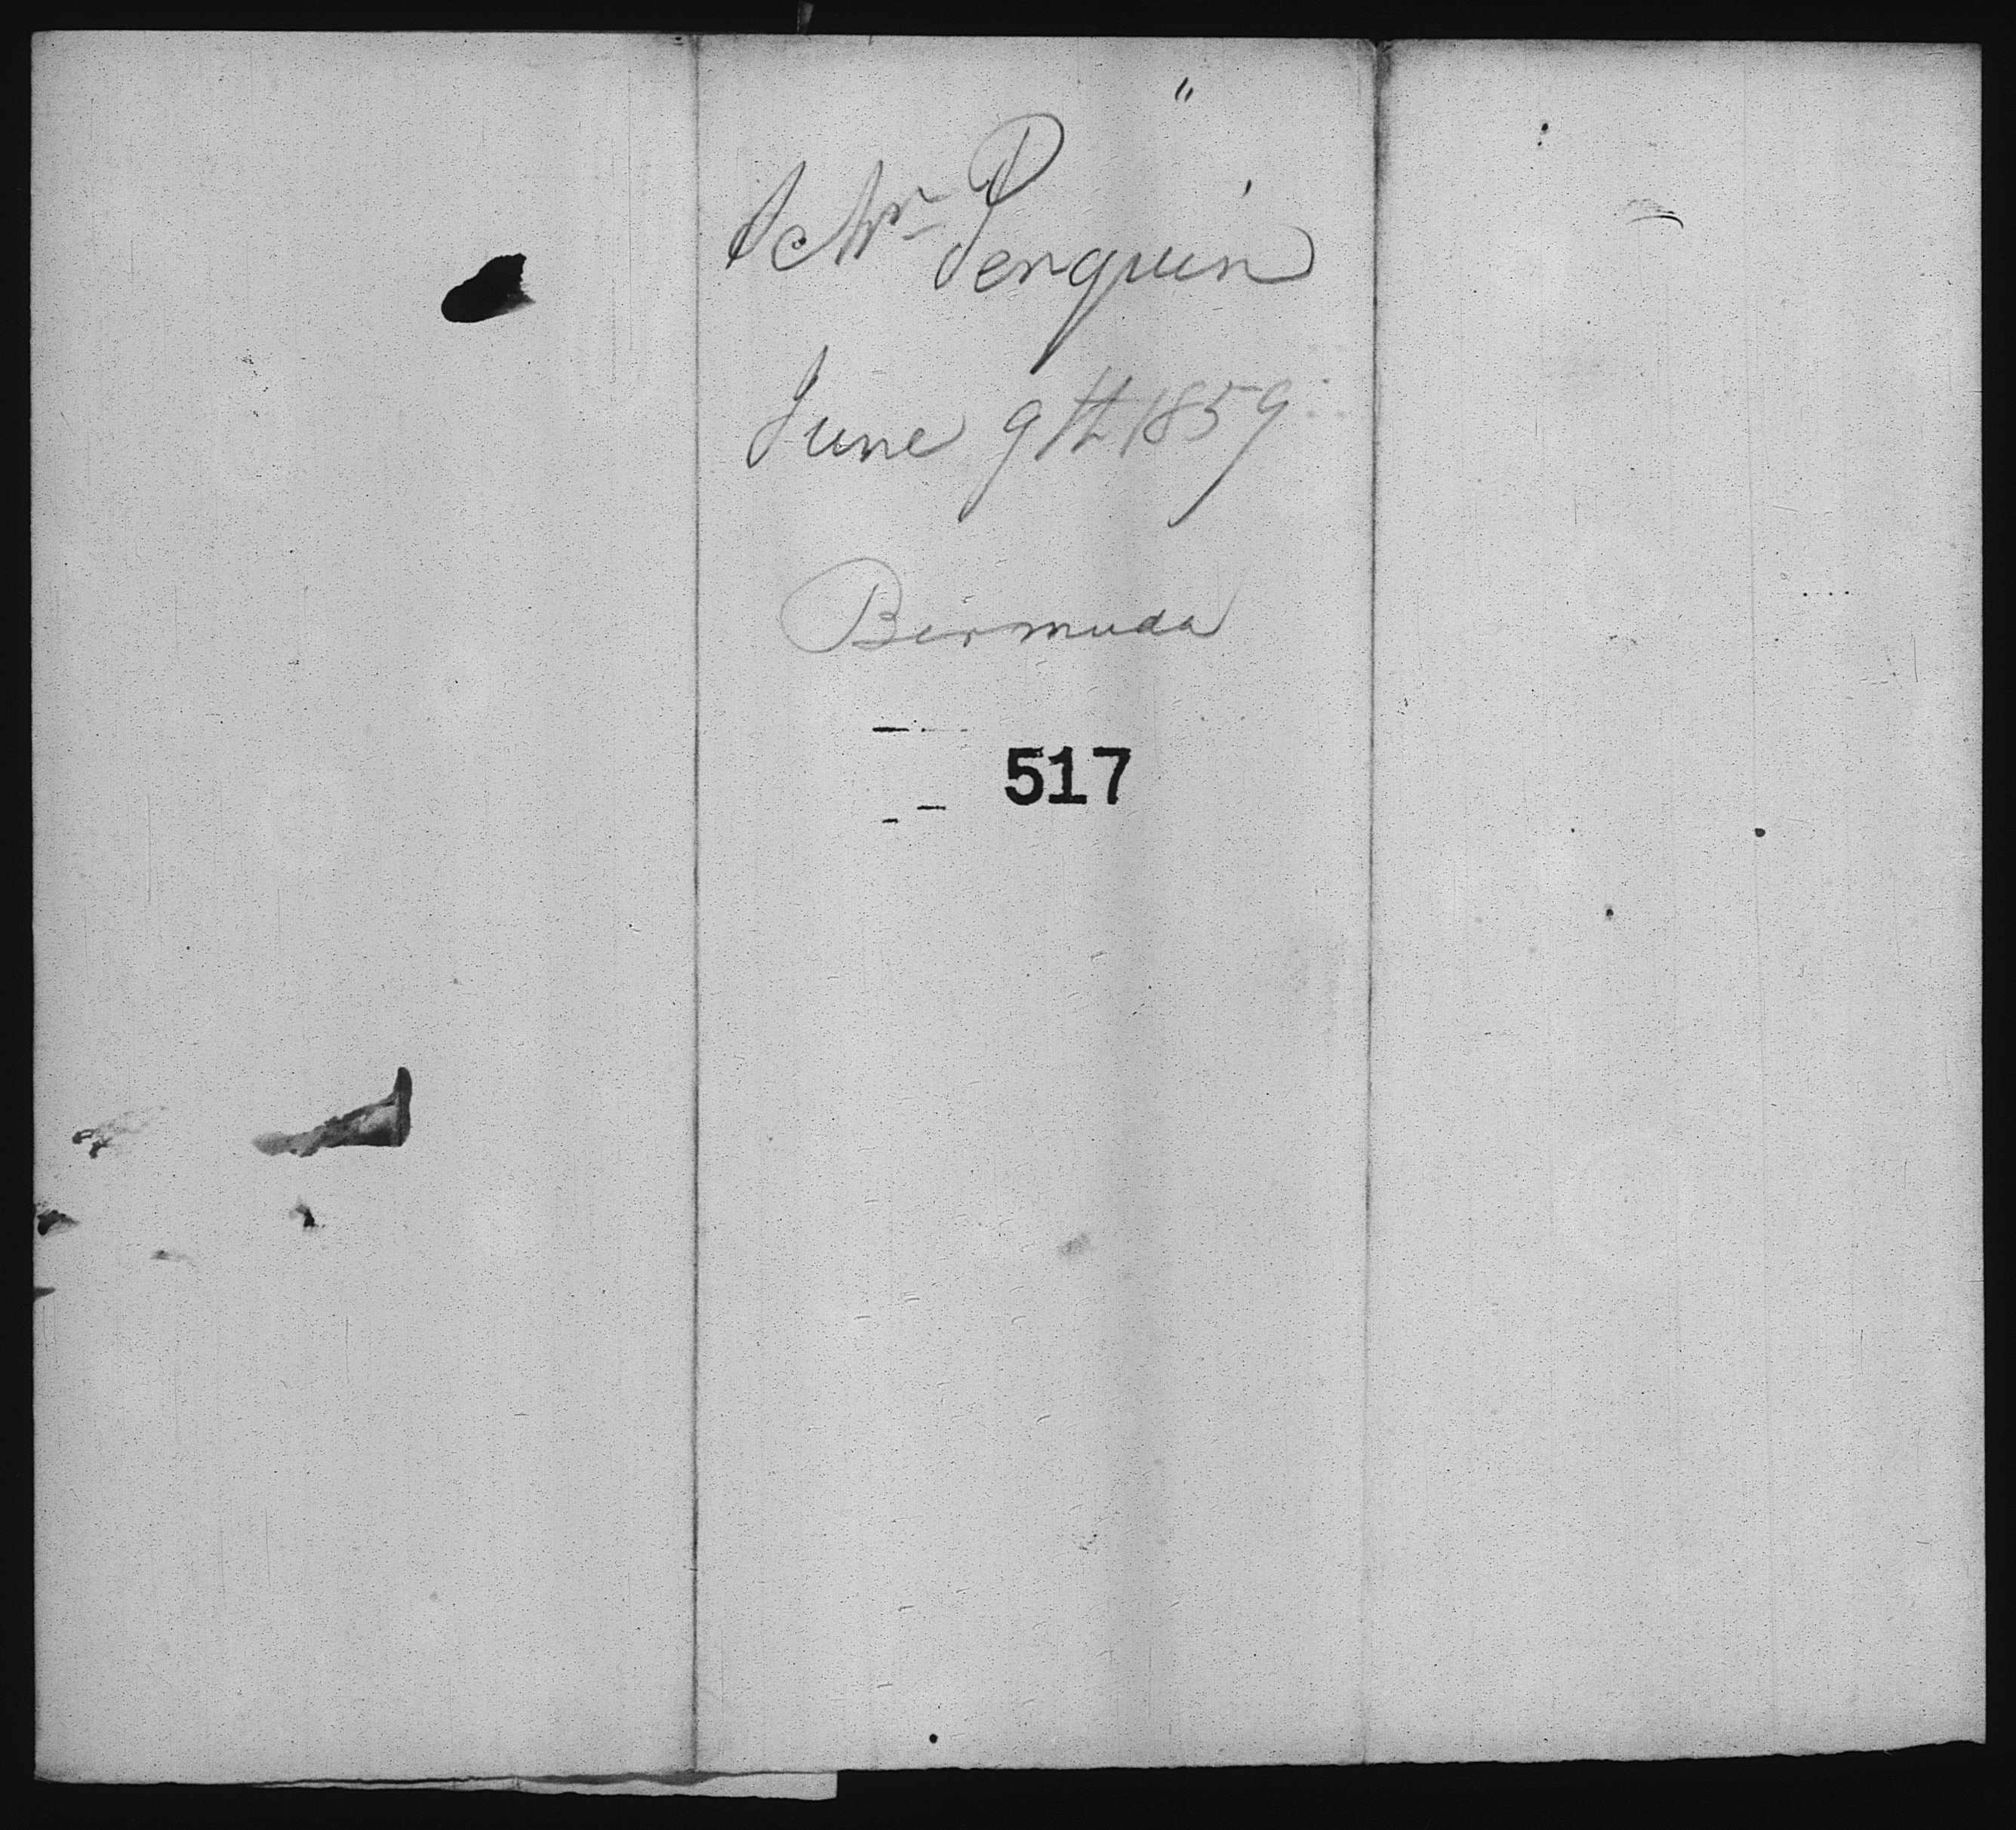 Schr Penguin
June 9th 1859
Bermuda
517